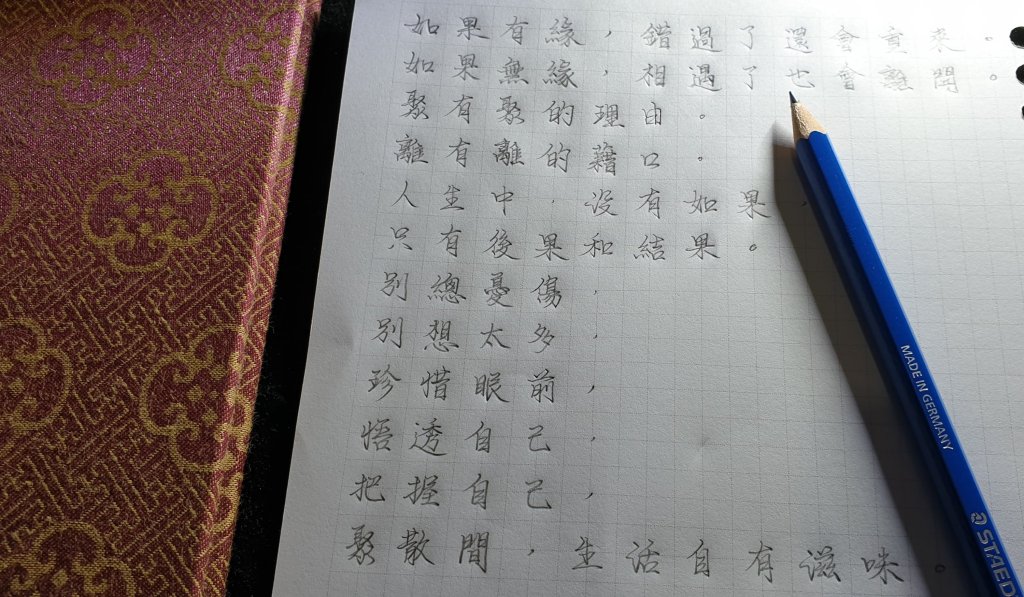 如果有緣，錯過了還會重來。
如果無緣，相遇了也會離開。
聚有聚的理由。
離有離的藉口。
人生中，沒有如果，
只有後果和結果。
別總憂傷，
別想太多，
珍惜眼前，
悟透自己，
把握自己，
聚散間，生活自有滋味。
MADE IN GERMANY
STAED